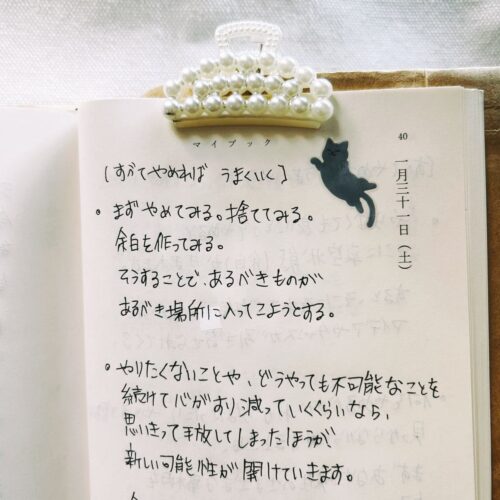 マイブック
40
一月三十一日(土)
[すべてやめれば うまくいく]
・まずやめてみる。捨ててみる。
余白を作ってみる。
そうすることで、あるべきものが
あるべき場所に入ってこようとする。
・やりたくないことや、どうやっても不可能なことを
続けて心がすり減っていくくらいなら、
思いきって手放してしまったほうが、
新しい可能性が開けていきます。